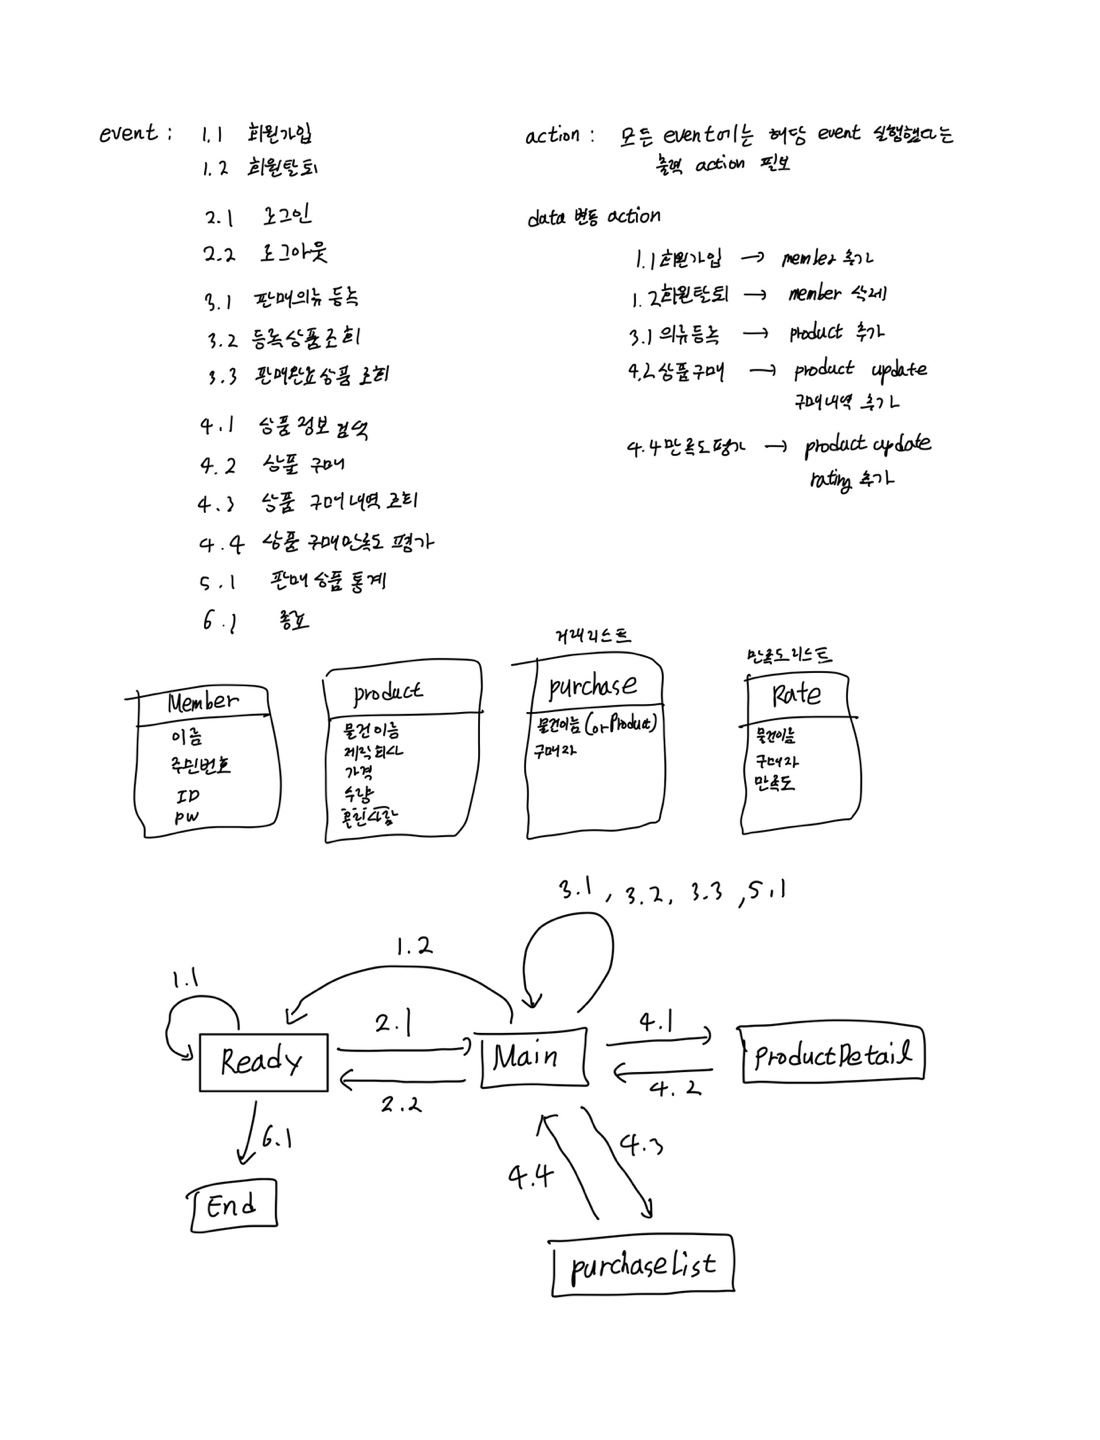 event : 1.1 회원가입
1.2 회원탈퇴
2.1 로그인
2.2 로그아웃
3.1 판매의류 등록
3.2 등록상품조회
3.3 판매완료상품 조회
4.1 상품 정보 검색
4.2 상품 구매
4.3 상품 구매내역 조회
4.4 상품 구매만족도 평가
5.1 판매 상품 통계
6.1 종료
action : 모든 event에는 해당 event 실행했다는
출력 action 필요
data 변동 action
1.1 회원가입 → member 추가
1.2 회원탈퇴 → member 삭제
3.1 의류등록 → product 추가
4.2 상품구매 → product update
구매내역 추가
4.4 만족도평가 → product update
rating 추가
Member
이름
주민번호
ID
PW
product
물건이름
제작회사
가격
수량
거래리스트
purchase
물건이름 (or Product)
구매자
만족도리스트
Rate
물건이름
구매자
만족도
3.1 , 3.2, 3.3 , 5.1
1.2
1.1
2.1
4.1
Ready
Main
ProductDetail
2.2
4.2
6.1
4.4
4.3
End
purchaseList